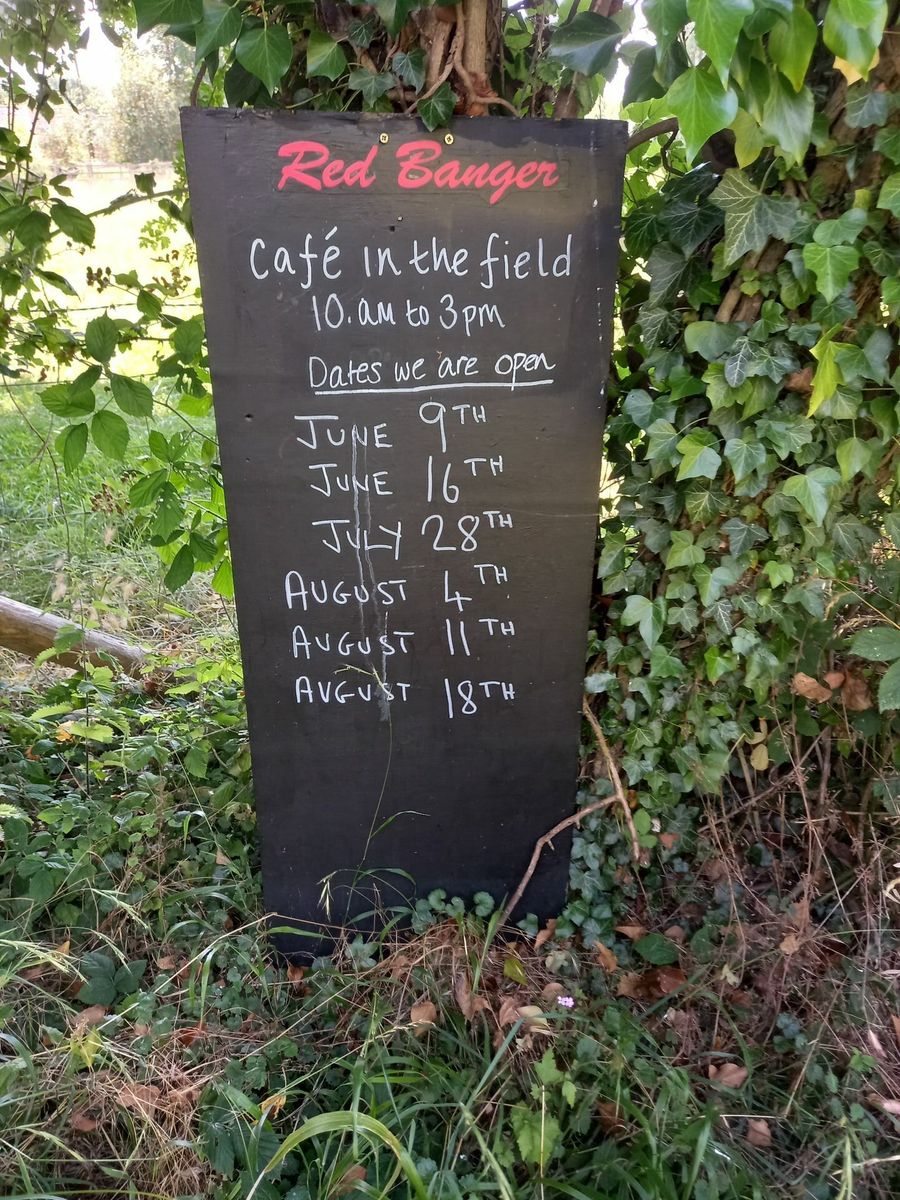 Red Banger
Café in the field
10.am to 3pm
Dates we are open
JUNE 9TH
JUNE 16TH
JULY 28TH
AUGUST 4TH
AUGUST 11TH
AUGUST 18TH